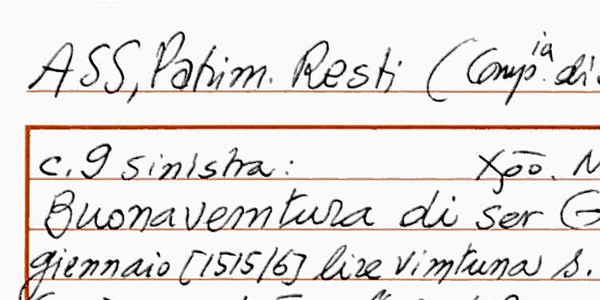 ASS, Patrim. Resti (Comp.ia di
c. 9 sinistra: Xpō. M
Buonaventura di ser G
giennaio [1515/6] lire vimtuna s.